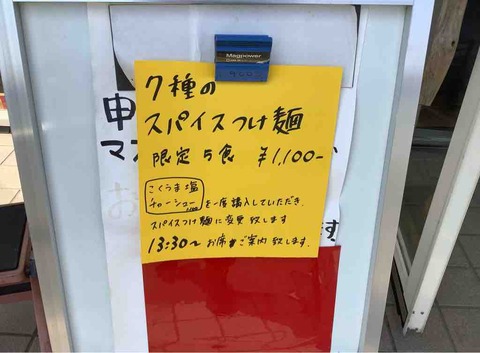 Magpower
7種の
スパイスつけ麺
限定5食 ¥1,100-
こくうま塩
チャーシュー1,100 を一度購入していただき、
スパイスつけ麺に変更致します
13:30〜お席ご案内致します.
申
マス
お
す